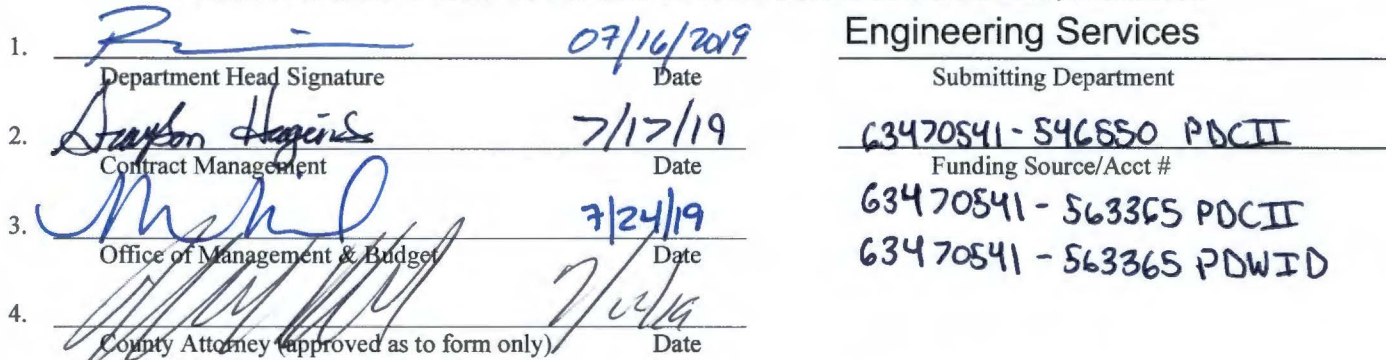 1. 07/16/2019
Department Head Signature Date
2. 7/17/19
Contract Management Date
3. 7/24/19
Office of Management & Budget Date
4.
County Attorney (approved as to form only) Date
Engineering Services
Submitting Department
63470541-546550 PDCII
Funding Source/Acct #
63470541-563365 PDCII
63470541-563365 PDWID